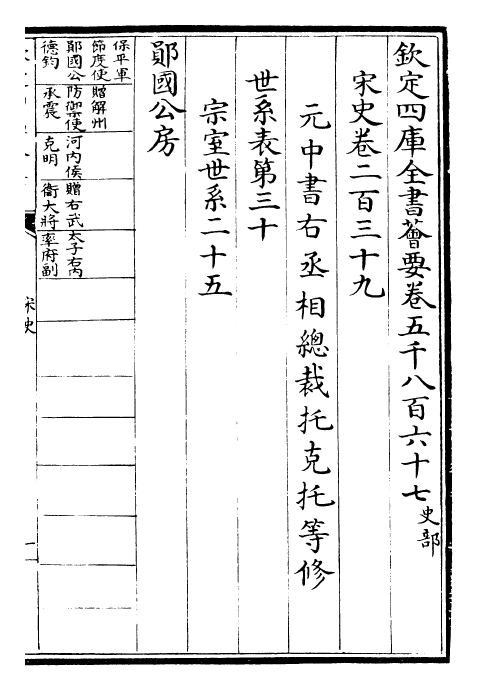 欽定四庫全書薈要卷五千八百六十七 史部
宋史卷二百三十九
元中書右丞相總裁托克托等修
世系表第三十
宗室世系二十五
鄖國公房
保平軍
節度使 贈解州
鄖國公 防禦使 河内侯 贈右武 太子右内
德鈞 承震 克明 衛大將 率府副
宋史